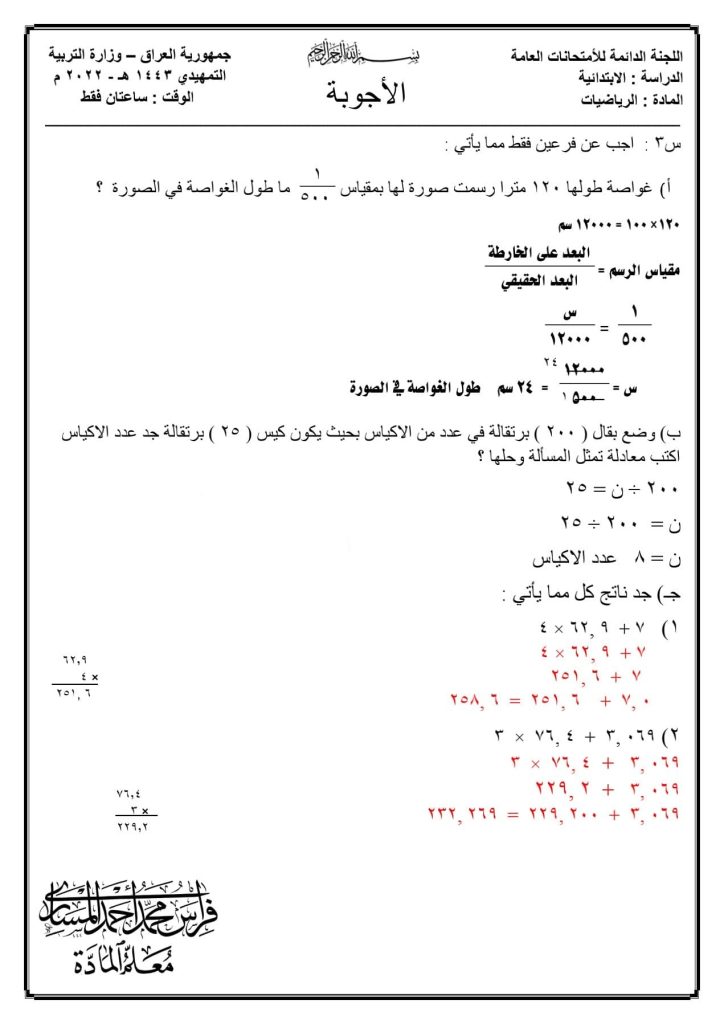 اللجنة الدائمة للأمتحانات العامة
الدراسة : الابتدائية
المادة : الرياضيات
بسم الله الرحمن الرحيم
الأجوبة
جمهورية العراق – وزارة التربية
التمهيدي ١٤٤٣ هـ - ٢٠٢٢ م
الوقت : ساعتان فقط
س٣ : اجب عن فرعين فقط مما يأتي :
أ) غواصة طولها ١٢٠ مترا رسمت صورة لها بمقياس ١/٥٠٠ ما طول الغواصة في الصورة ؟
١٢٠ × ١٠٠ = ١٢٠٠٠ سم
مقياس الرسم = البعد على الخارطة / البعد الحقيقي
١/٥٠٠ = س/١٢٠٠٠
س = ١٢٠٠٠ ٢٤ / ٥٠٠ ١ = ٢٤ سم طول الغواصة في الصورة
ب) وضع بقال ( ٢٠٠ ) برتقالة في عدد من الاكياس بحيث يكون كيس ( ٢٥ ) برتقالة جد عدد الاكياس
اكتب معادلة تمثل المسألة وحلها ؟
٢٠٠ ÷ ن = ٢٥
ن = ٢٠٠ ÷ ٢٥
ن = ٨ عدد الاكياس
جـ) جد ناتج كل مما يأتي :
١) ٧ + ٦٢,٩ × ٤
٧ + ٦٢,٩ × ٤
٧ + ٢٥١,٦
٧,٠ + ٢٥١,٦ = ٢٥٨,٦
٦٢,٩
× ٤
٢٥١,٦
٢) ٣,٠٦٩ + ٧٦,٤ × ٣
٣,٠٦٩ + ٧٦,٤ × ٣
٣,٠٦٩ + ٢٢٩,٢
٣,٠٦٩ + ٢٢٩,٢٠٠ = ٢٣٢,٢٦٩
٧٦,٤
× ٣
٢٢٩,٢
فراس محمد احمد المساري
معلم المادة